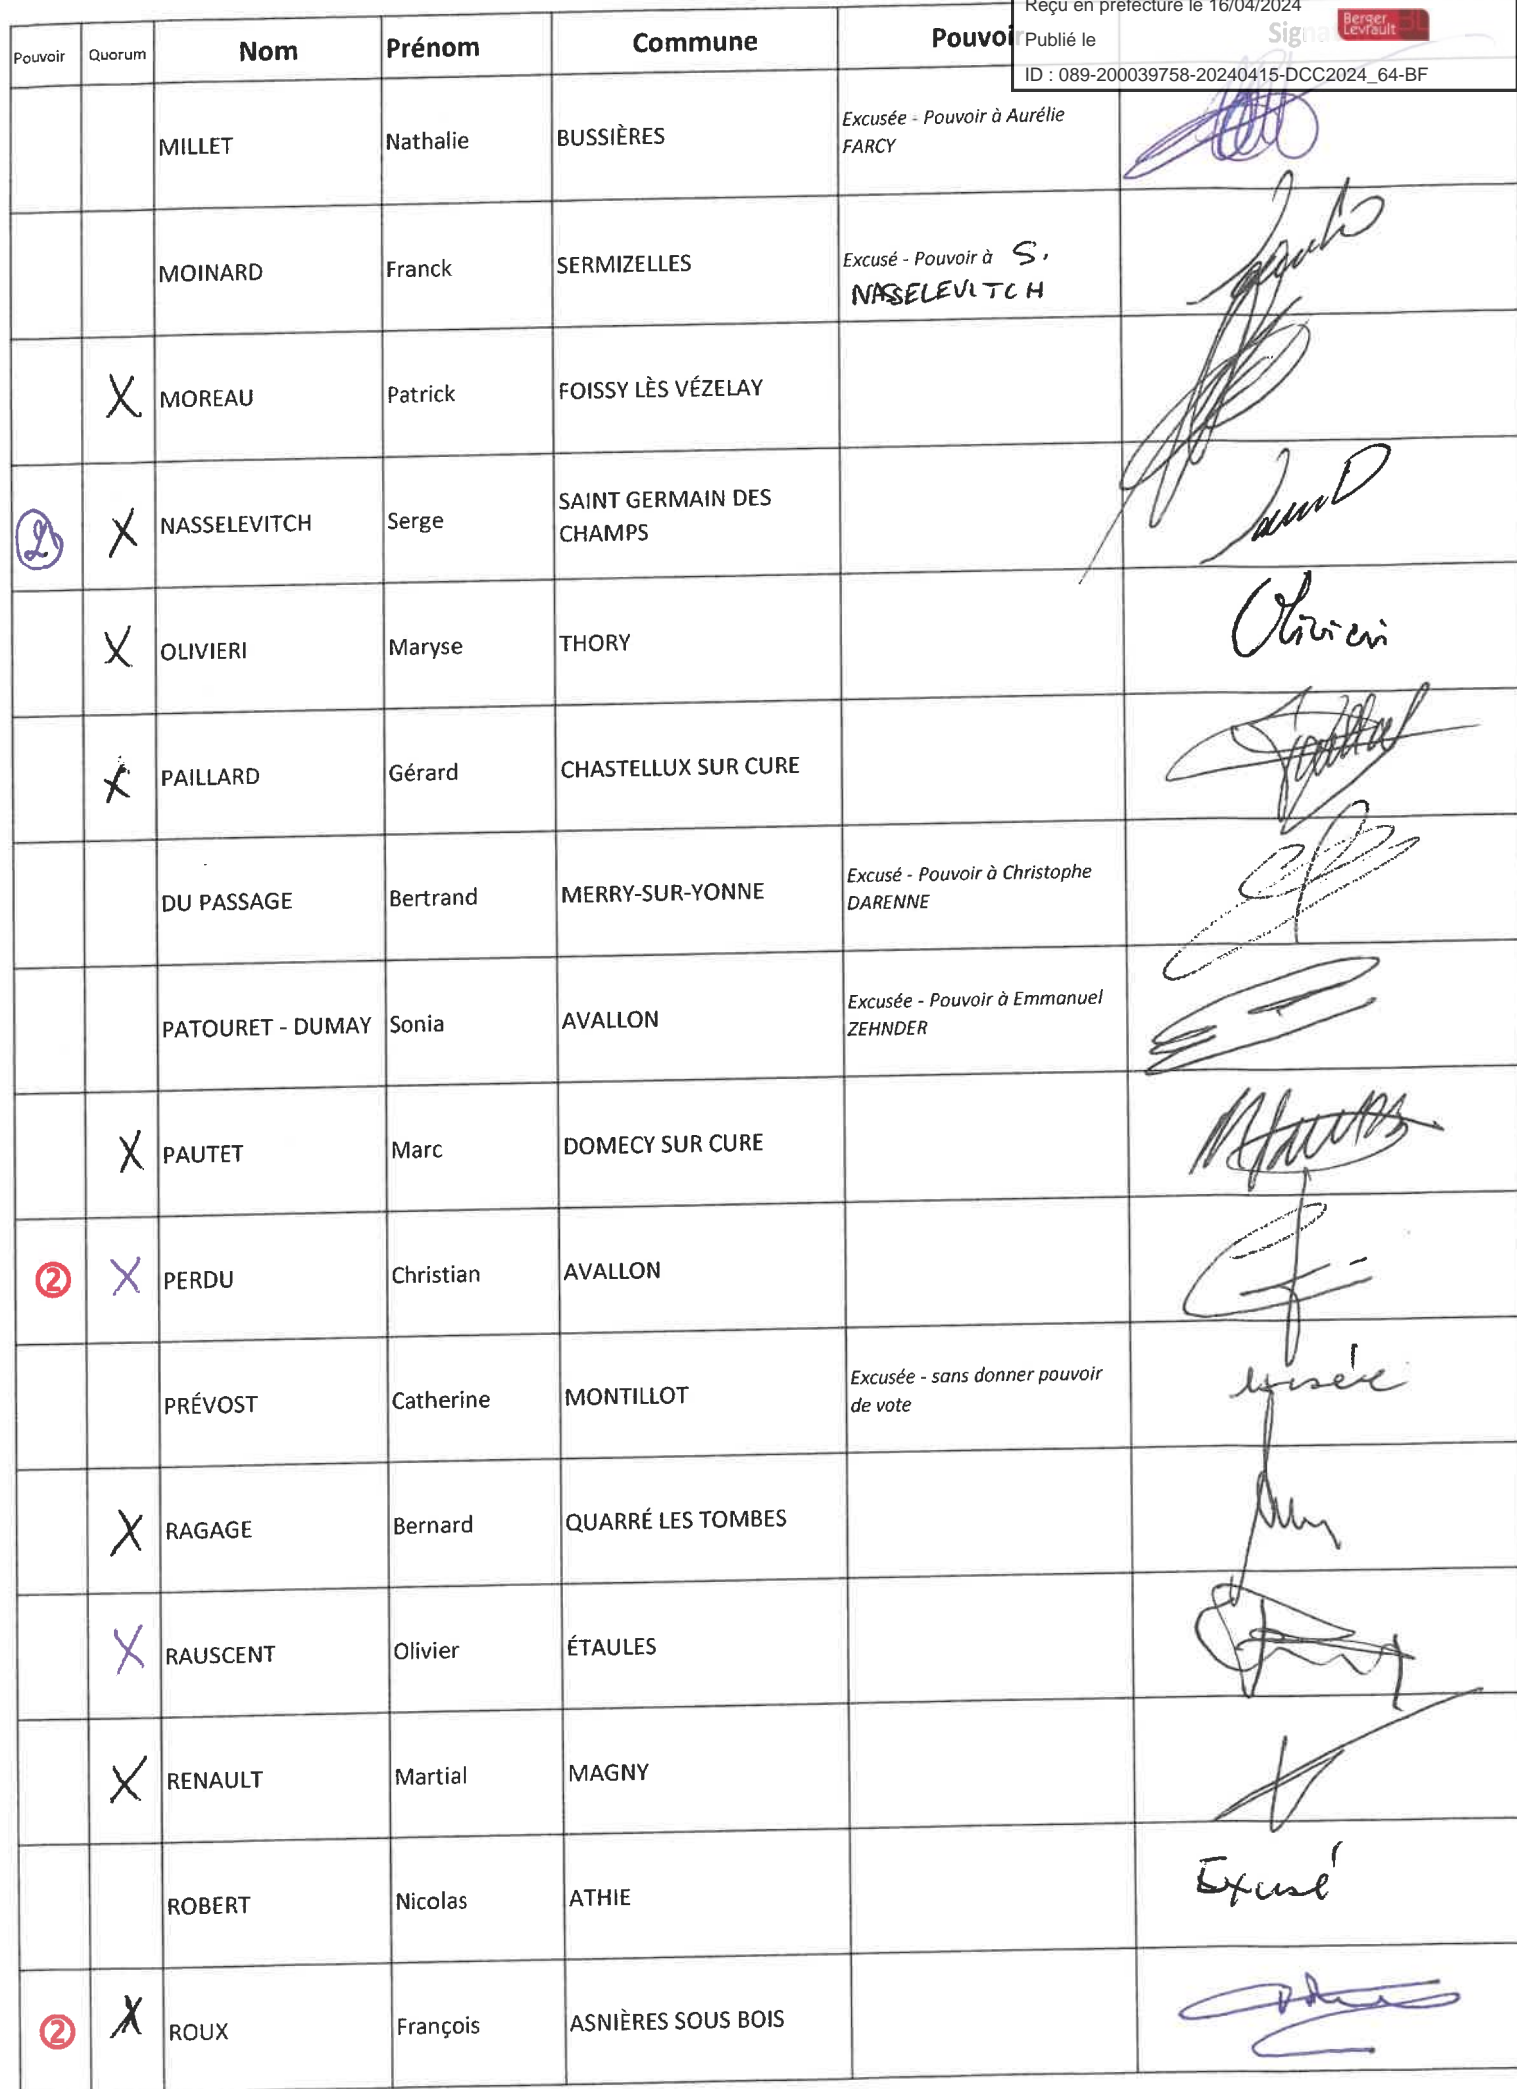 Reçu en préfecture le 16/04/2024
Publié le
Berger
Levrault
ID : 089-200039758-20240415-DCC2024_64-BF
Pouvoir Quorum Nom Prénom Commune Pouvoir
MILLET Nathalie BUSSIÈRES Excusée - Pouvoir à Aurélie
FARCY
MOINARD Franck SERMIZELLES Excusé - Pouvoir à S.
NASSELEVITCH
X MOREAU Patrick FOISSY LÈS VÉZELAY
2 X NASSELEVITCH Serge SAINT GERMAIN DES
CHAMPS
X OLIVIERI Maryse THORY Olivieri
X PAILLARD Gérard CHASTELLUX SUR CURE
DU PASSAGE Bertrand MERRY-SUR-YONNE Excusé - Pouvoir à Christophe
DARENNE
PATOURET - DUMAY Sonia AVALLON Excusée - Pouvoir à Emmanuel
ZEHNDER
X PAUTET Marc DOMECY SUR CURE
2 X PERDU Christian AVALLON
PRÉVOST Catherine MONTILLOT Excusée - sans donner pouvoir
de vote
X RAGAGE Bernard QUARRÉ LES TOMBES
X RAUSCENT Olivier ÉTAULES
X RENAULT Martial MAGNY
ROBERT Nicolas ATHIE Excusé
2 X ROUX François ASNIÈRES SOUS BOIS